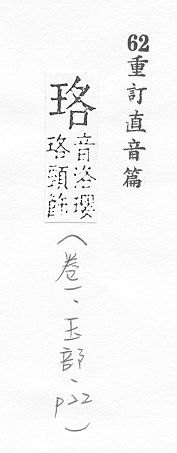 62重訂直音篇
珞
音洛瓔
珞頸飾
(卷一、玉部、p22)